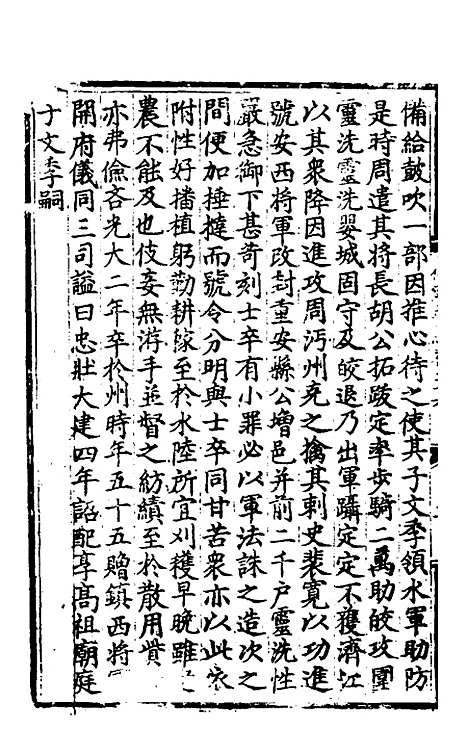 備給鼓吹一部因推心待之使其子文季領水軍助防
是時周遣其將長胡公拓跋定率步騎二萬助皎攻圍
靈洗靈洗嬰城固守及皎退乃出軍躡定定不獲濟江
以其衆降因進攻周沔州克之擒其刺史裴寬以功進
號安西將軍改封重安縣公增邑并前二千戶靈洗性
嚴急御下甚苛刻士卒有小罪必以軍法誅之造次之
間便加捶撻而號令分明與士卒同甘苦衆亦以此依
附性好播植躬勤耕稼至於水陸所宜刈穫早晚雖
農不能及也伎妾無游手並督之紡績至於散用貲
亦弗儉吝光大二年卒於州時年五十五贈鎮西將
開府儀同三司諡曰忠壯大建四年詔配享高祖廟庭
子文季嗣